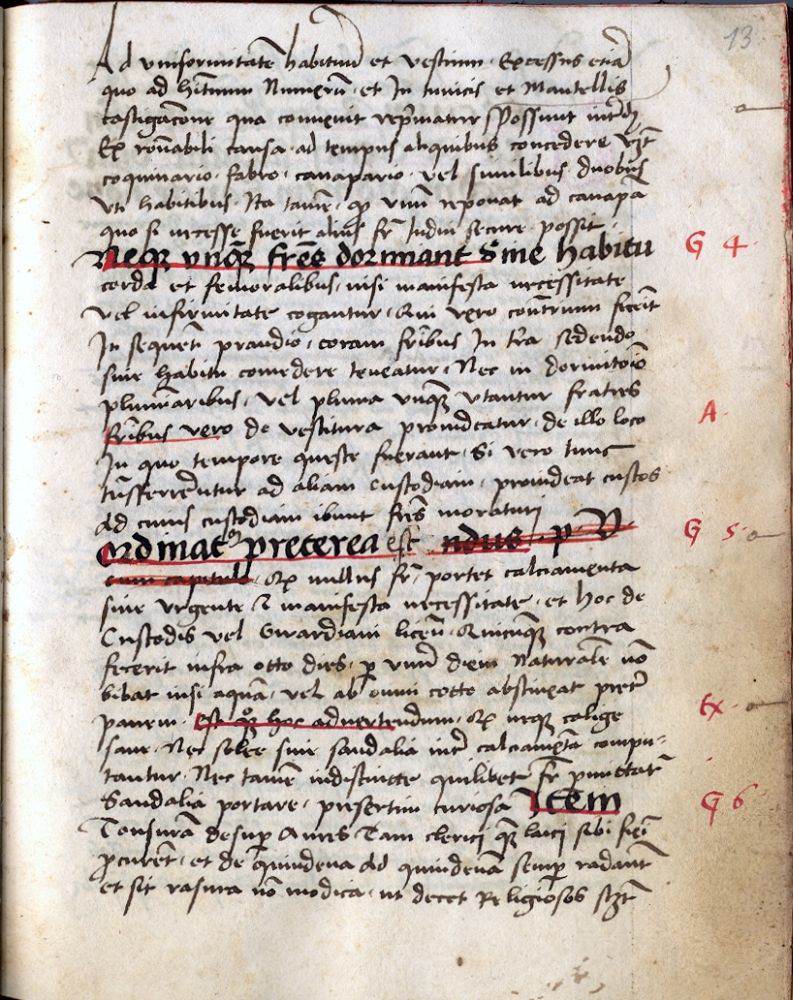 13
Ad vniformitatē habituū et vestium. Excessus etiā
quo ad hītuum Numerū. et In tunicis et Mantellis
castigac̄one qua conuenit rep̄matur Possunt
Ex ron̄abili causa ad tempus aliquibus concedere
coquinario. fabro. canapario. vel similibus duobus
vti habitibus. Ita tamē. qp vnū reponat ad canapā
quo si necesse fuerit alius fr̄ Indui secure possit.
Neqz vnqz fr̄es dormiant sine habitu G 4.
corda et femoralibus. nisi manifesta necessitate
vel infirmitate cogantur. Qui vero contrium fecit
In sequenti prandio. coram fr̄ibus In tr̄a sedendo
sine habitu comedere teneatur. Nec in dormitōio
plumaribus. vel pluma vnqz vtantur fratres A.
fr̄ibus vero de vestitura prouideatur. de illo loco
In quo tempore queste fuerant. Si vero tunc
ad aliam Custodiam. prouideat custos
ad cuius custodiam ibunt fr̄es moraturi
Ordinat preterea est ndus. p V G 5.
cum capitulo. qp nullus fr̄. portet calciamenta
sine vrgente z manifesta necessitate. et hoc de
Custodis vel Gwardiani licen̄. Quicunqz contra
fecerit infra otto dies. p vnū diem Naturalē nō
bibat nisi aquā. vel ab omni cotto abstineat preter Ex.
panem. Est qz hoc aduertendum. qp neqz calige
sane. Nec solee siue sandalia int̄ calciamēta compu-
tantur. Nec tamē indistincte quilibet fr̄
Sandalia portare. presertim curiosa Item G 6
Tonsurā desup Aures Tam clerici qz laici sibi fieri
p̄curēt. et de quindena ad quindenā semp radant
et sit rasura nō modica. ut decet Religiosos